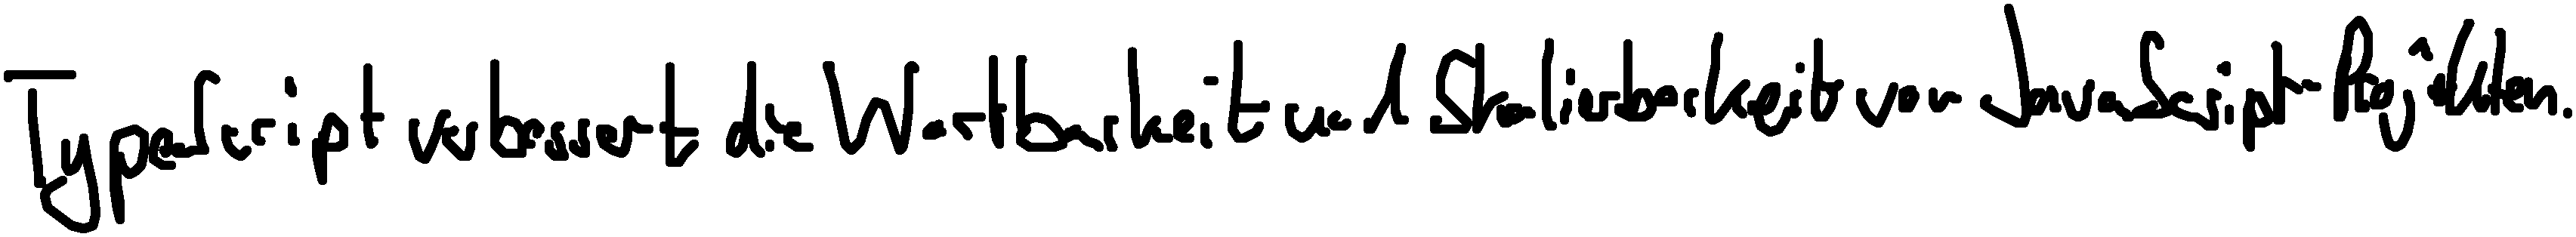 TypeScript verbessert die Wartbarkeit und Skalierbarkeit von JavaScript-Projekten.